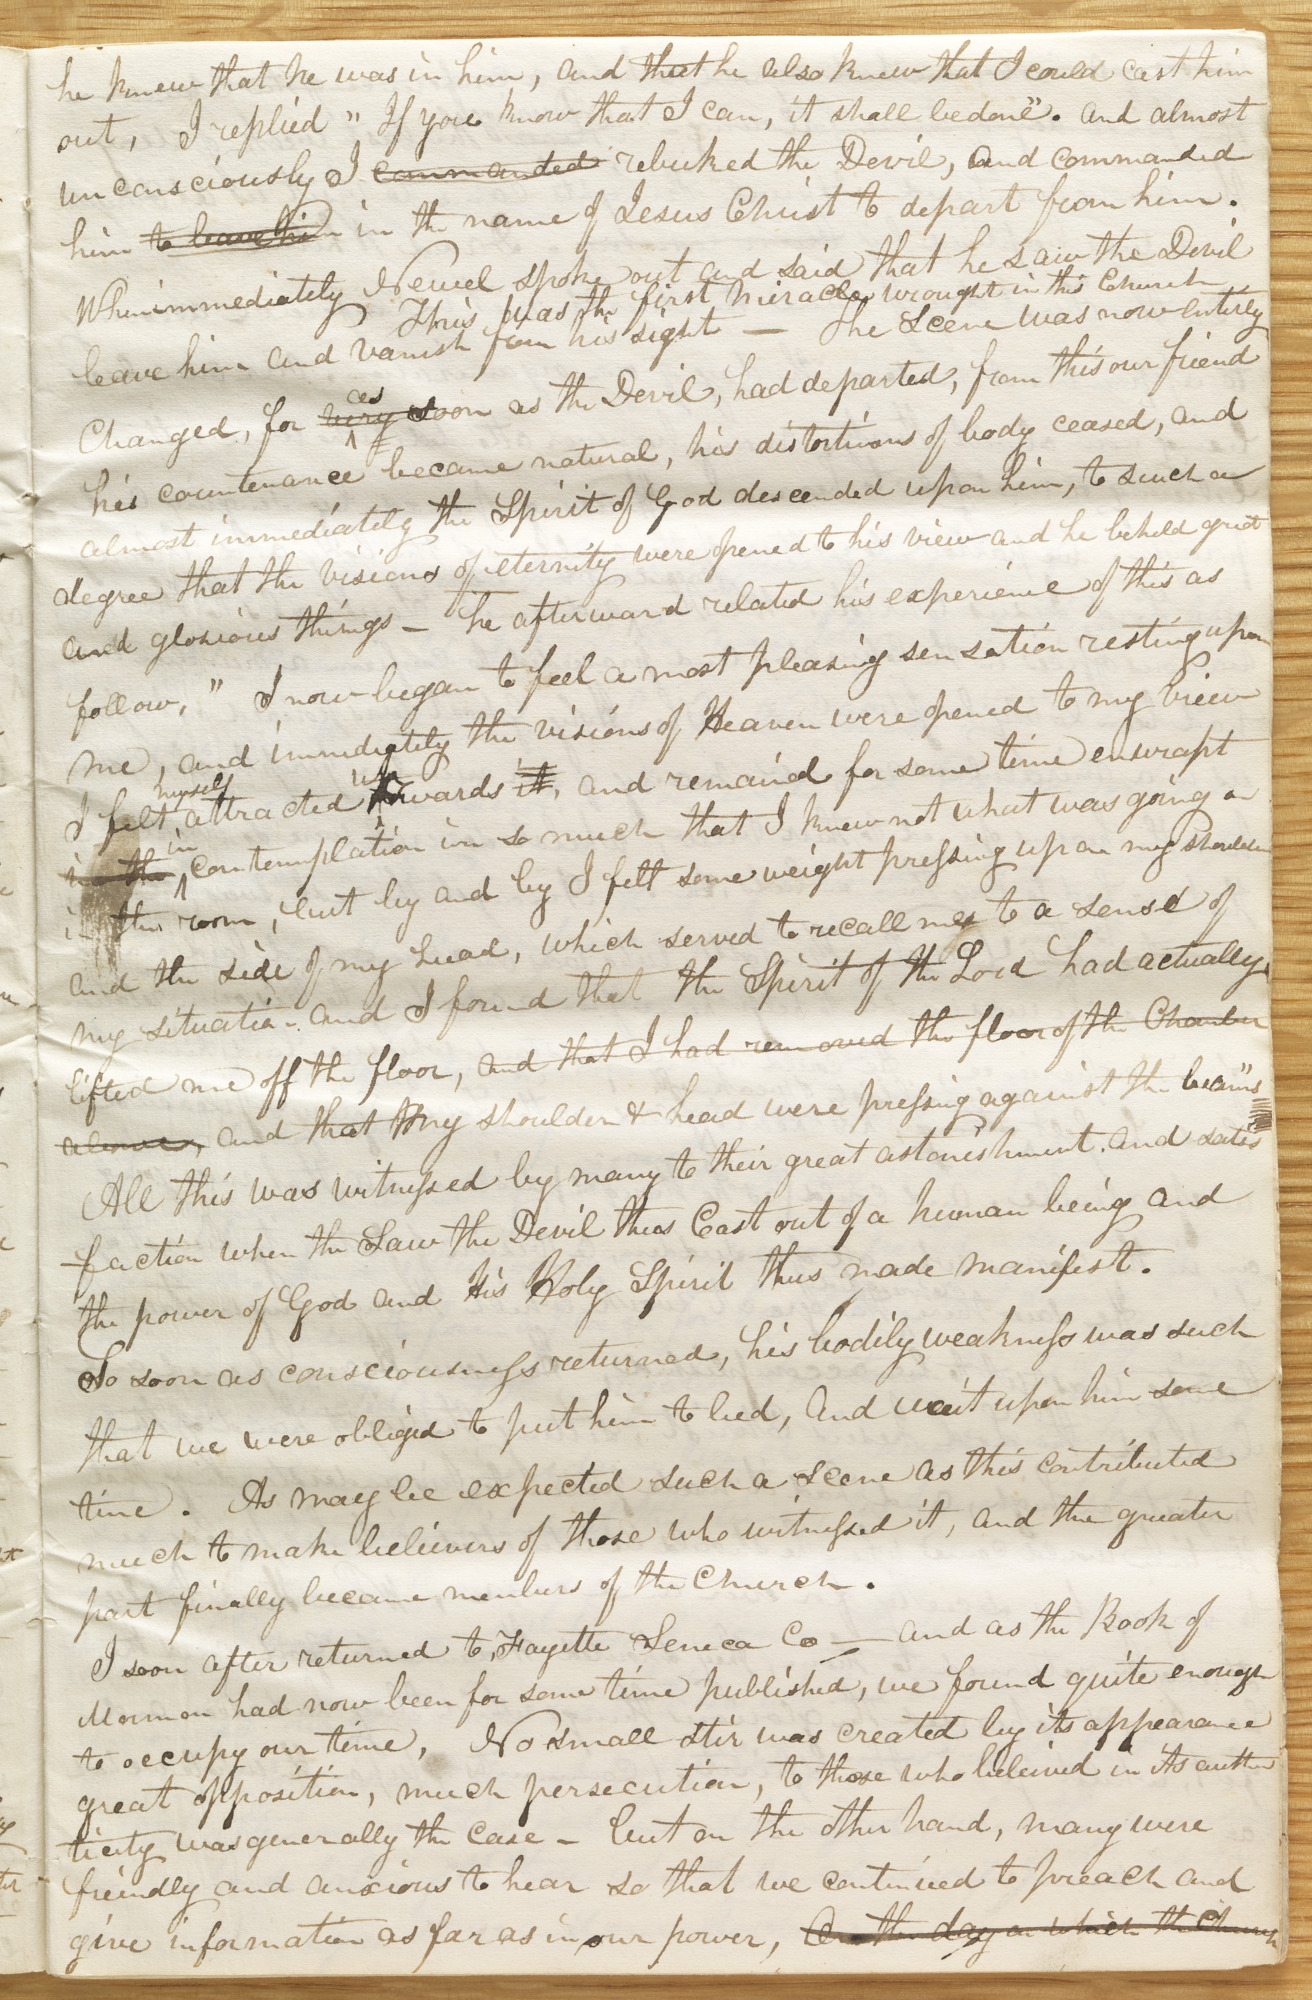 he knew that he was in him, and that he also knew that I could cast him
out, I replied " If you know that I can, it shall be done". and almost
unconsciously I commanded rebuked the Devil, and commanded
him to leave him in the name of Jesus Christ to depart from him.
When immediately Newel spoke out and said that he saw the Devil
This was the first miracle wrought in this Church
leave him and vanish from his sight — The scene was now entirely
Changed, for very as soon as the Devil, had departed, from this our friend
his countenance became natural, his distortions of body ceased, and
almost immediately the Spirit of God descended upon him, to such a
degree that the visions of eternity were opened to his view and he beheld great
and glorious things — he afterward related his experience of this as
follow, " I now began to feel a most pleasing sensation resting upon
me, and immediately the visions of Heaven were opened to my view
I felt myself attracted upwards it, and remained for some time enwrapt
in the in contemplation in so much that I knew not what was going on
in the room, but by and by I felt some weight pressing upon my shoulder
and the side of my head, which served to recall me to a sense of
my situation and I found that the Spirit of the Lord had actually
lifted me off the floor, and that I had removed the floor of the Chamber
above, and that my shoulder & head were pressing against the beams"
All this was witnessed by many to their great astonishment. and satis
faction when the saw the Devil thus Cast out of a human being and
the power of God and His Holy Spirit thus made manifest.
So soon as consciousness returned, his bodily weakness was such
that we were obliged to put him to bed, and wait upon him some
time. As may be expected such a scene as this contributed
much to make believers of those who witnessed it, and the greater
part finally became members of the Church.
I soon after returned to, Fayette Seneca Co — and as the Book of
Mormon had now been for some time published, we found quite enough
to occupy our time, No small stir was created by its appearance
great opposition, much persecution, to those who beleived in its authen
ticity was generally the case — but on the other hand, many were
friendly and anxious to hear so that we continued to preach and
give information as far as in our power, On the day on which the Church